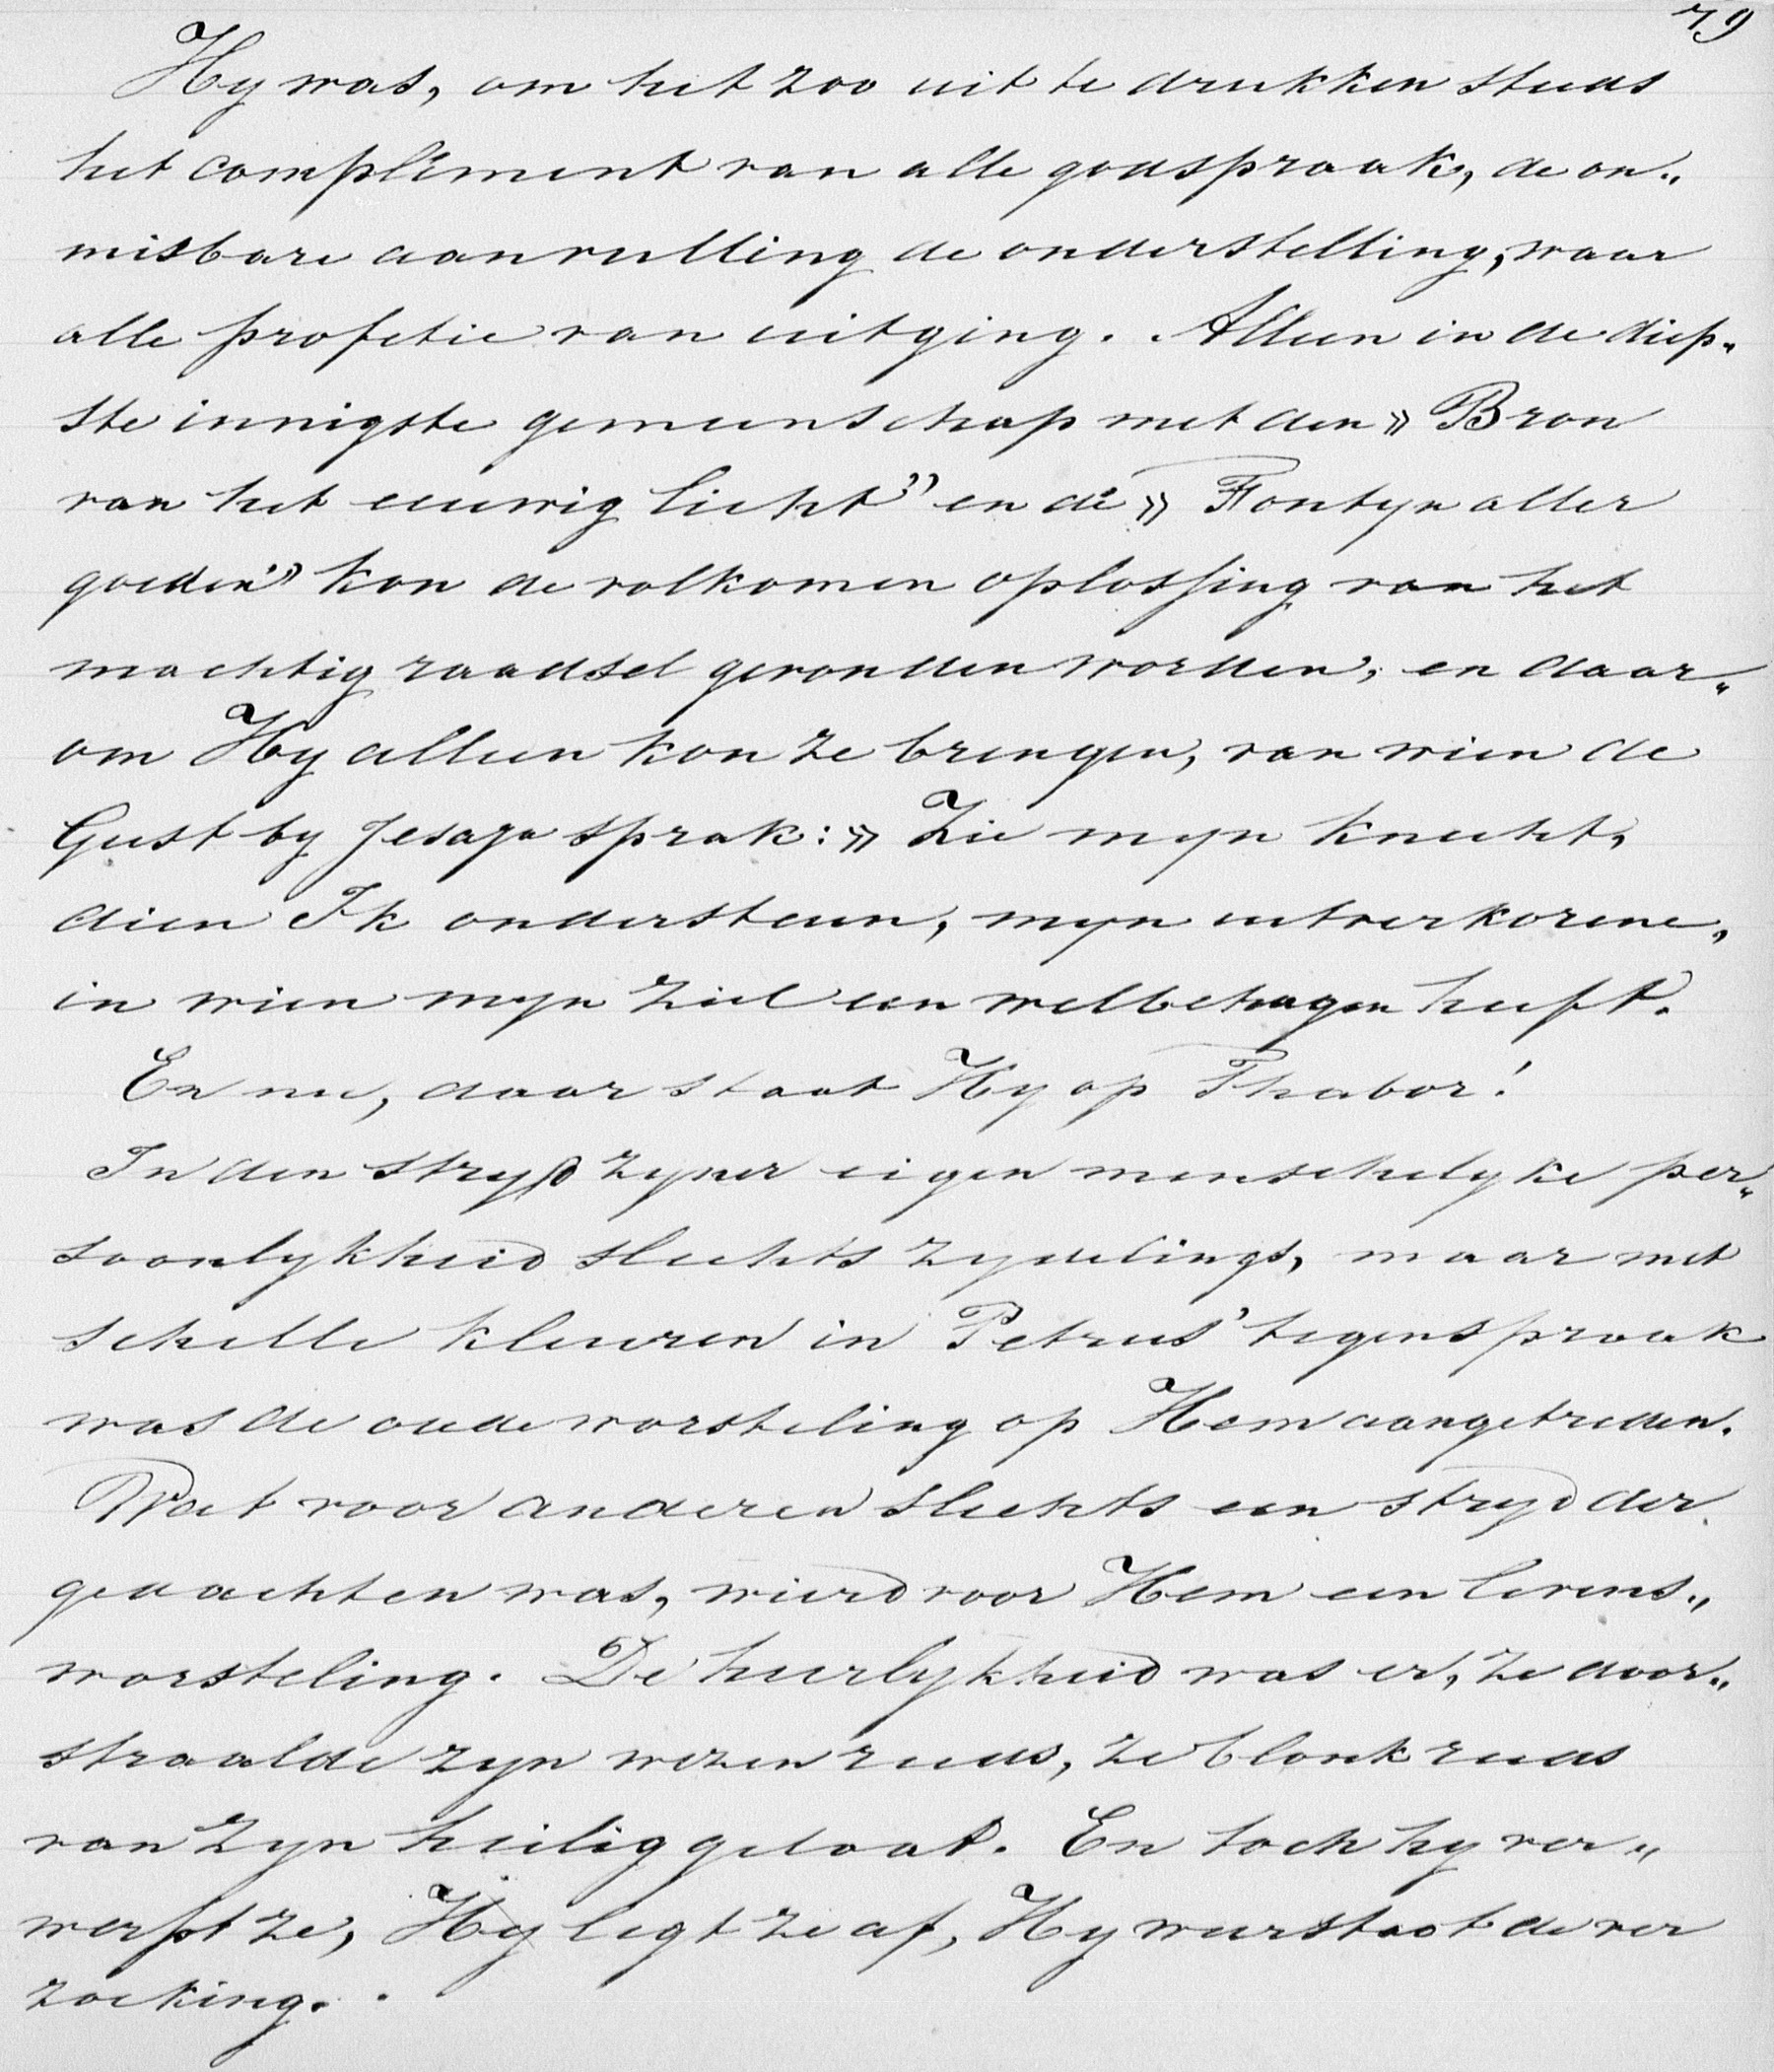 79
Hy was, om het zoo uit te drukken steeds
het compliment van alle godspraak, de on„
misbare aanvulling de onderstelling, waar
alle profetie van uitging. Alleen in de diep„
ste innigste gemeenschap met den » Bron
van het eeuwig licht” en de » Fontyn aller
goeden” kon de volkomen oplossing van het
machtig raadsel gevonden worden, en daar„
om Hy alleen kon ze brengen, van wien de
Geest by Jesaja sprak: » Zie myn knecht,
dien Ik ondersteun, myn uitverkorene,
in wien myn ziel een welbehagen heeft.
En nu, daar staat Hy op Thabor!
In den stryd zyner eigen menschelyke per„
soonlykheid slechts zydelings, maar met
schelle kleuren in Petrus' tegenspraak
was de oude worsteling op Hem aangetreden.
Wat voor anderen slechts een stryd der
gedachten was, wierd voor Hem een levens„
worsteling. De heerlykheid was er, ze door„
straalde zyn wezen reeds, ze blonk reeds
van zyn heilig gelaat. En toch hy ver„
werpt ze, Hy legt ze af, Hy weerstaat de ver
zoeking.